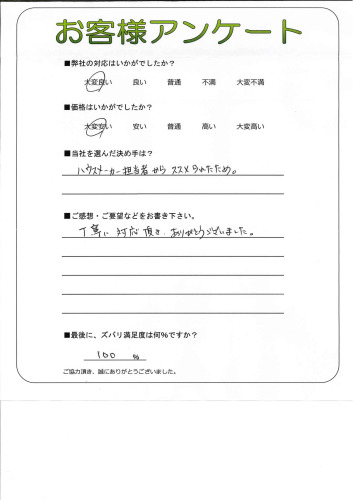 お客様アンケート
■弊社の対応はいかがでしたか？
大変良い 良い 普通 不満 大変不満
■価格はいかがでしたか？
大変安い 安い 普通 高い 大変高い
■当社を選んだ決め手は？
ハウスメーカー担当者から ススメられたため。
■ご感想・ご要望などをお書き下さい。
丁寧に 対応 頂き、ありがとうございました。
■最後に、ズバリ満足度は何%ですか？
100 %
ご協力頂き、誠にありがとうございました。